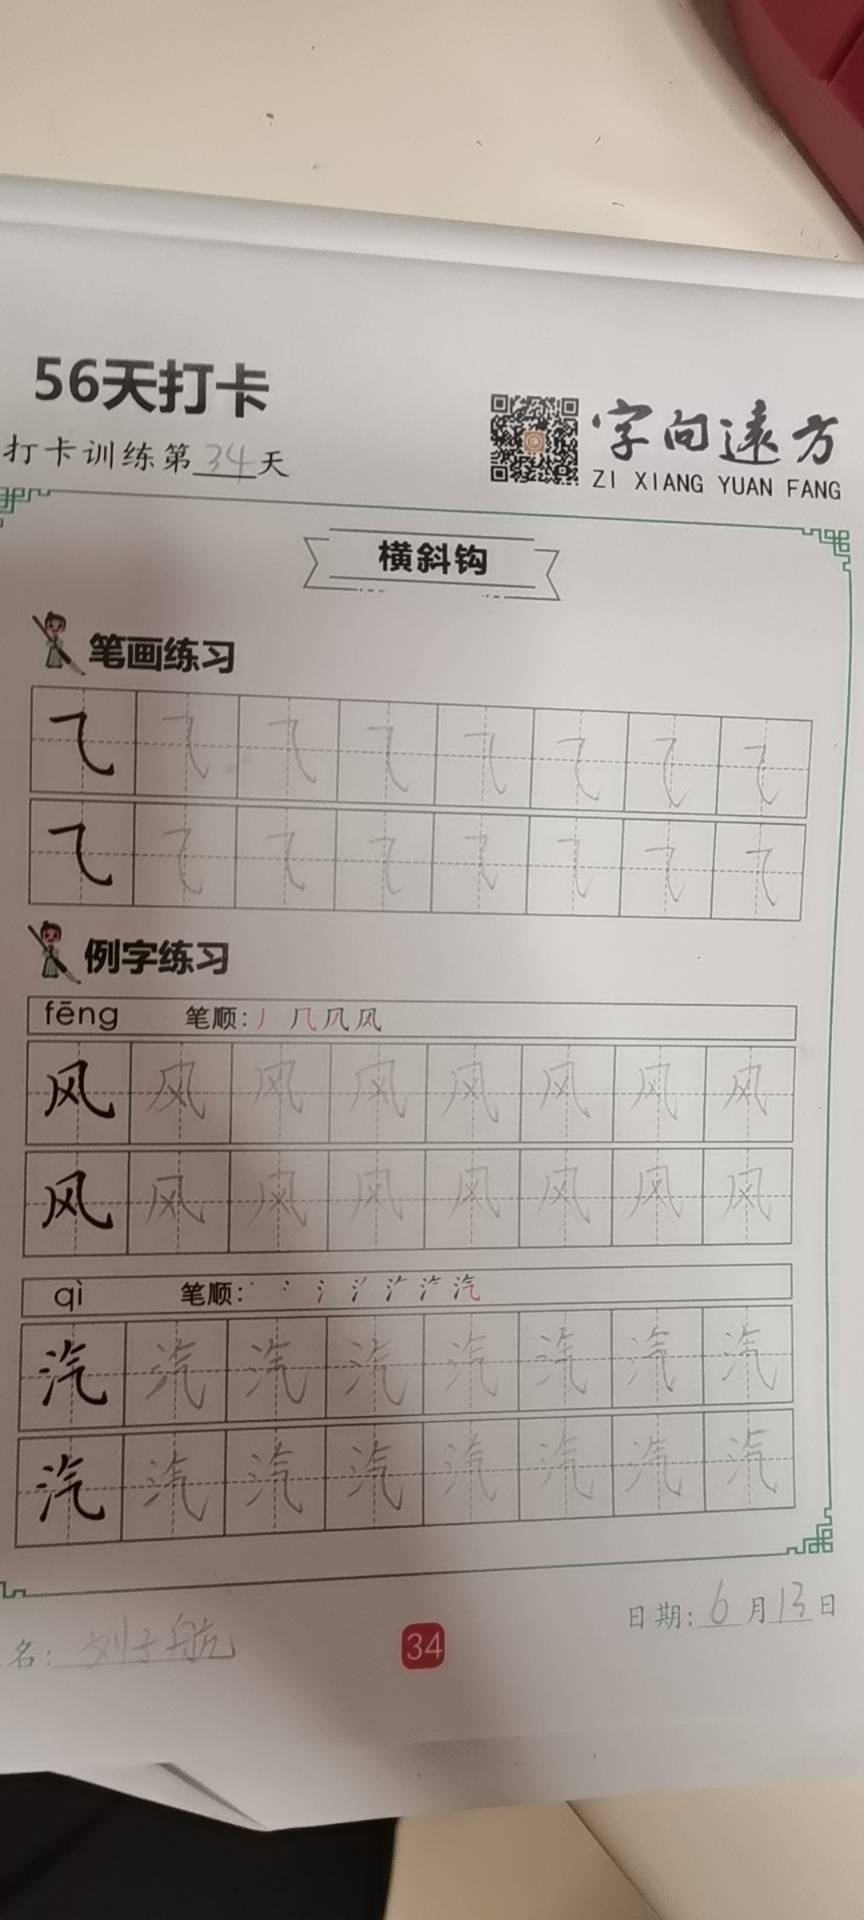 56天打卡
打卡训练第34天
字向远方
ZI XIANG YUAN FANG
横斜钩
笔画练习
⺄ ⺄ ⺄ ⺄ ⺄ ⺄ ⺄ ⺄
⺄ ⺄ ⺄ ⺄ ⺄ ⺄ ⺄ ⺄
例字练习
fēng 笔顺：丿 几 凤 风
风 风 风 风 风 风 风 风
风 风 风 风 风 风 风 风
qì 笔顺：
汽 汽 汽 汽 汽 汽 汽 汽
汽 汽 汽 汽 汽 汽 汽 汽
名：刘子航
34
日期：6月13日